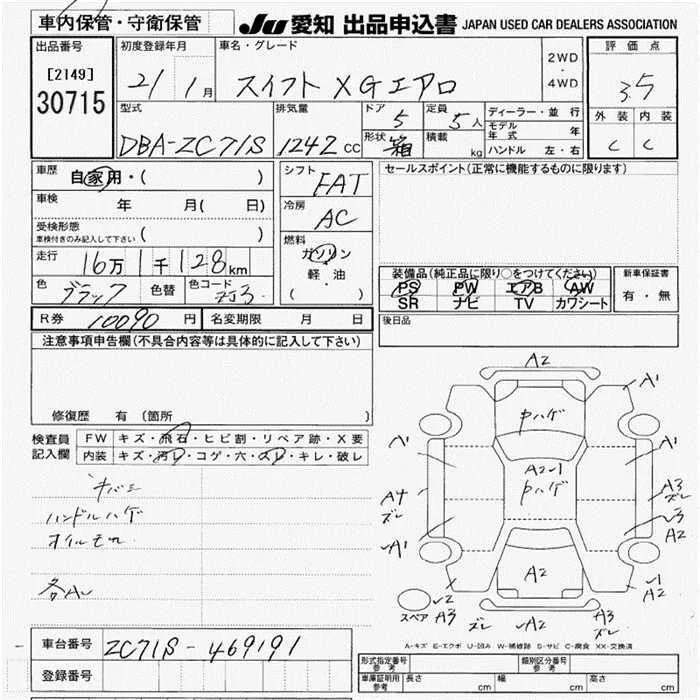 車内保管・守衛保管
JU 愛知 出品申込書 JAPAN USED CAR DEALERS ASSOCIATION
出品番号
[2149]
30715
初度登録年月
21 1月
車名・グレード
スイフト XGエアロ
2WD
・
4WD
評価点
3.5
外装 内装
C C
型式
DBA-ZC71S
排気量
1242 cc
ドア
5
形状
箱
定員
5人
積載
kg
ディーラー・並行
モデル年式 年
ハンドル 左・右
車歴
自家用・( )
車検
年 月( 日)
受検形態
車検付きのみ記入して下さい ( )
走行
16万1千128km
色
ブラック
色替
色コード
ZJ3
シフト
FAT
冷房
AC
燃料
ガソリン
軽・油
( )
セールスポイント(正常に機能するものに限ります)
装備品(純正品に限り○をつけてください)
PS PW エアB AW
SR ナビ TV カワシート
新車保証書
有・無
R券 10090円
名変期限 月 日
後日品
注意事項申告欄(不具合内容等は具体的に記入して下さい)
修復歴 有(箇所 )
検査員記入欄
FW キズ・飛石・ヒビ割・リペア跡・X要
内装 キズ・汚レ・コゲ・穴・スレ・キレ・破レ
キバミ
ハンドルハゲ
オイルモレ
各A
A2
A1
Pハゲ
A1
A2-1
Pハゲ
A4
ズレ
A3
ズレ
✓3
A2
✓A1
A2
✓1
A2
スペア
✓2
A3
ズレ
✓A2
A3
ズレ
A-キズ E-エクボ U-凹み W-補修跡 S-サビ C-腐食 XX-交換済
車台番号 ZC71S-469191
登録番号
形式指定番号
参考
類別区分番号
参考
車庫証明用
参考
長さ cm
幅 cm
高さ cm